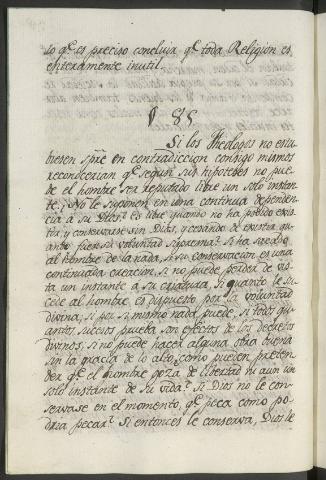 lo q.e es preciso concluir q.e toda Religion es
enteramente inutil.
§ 85
Si los Theologos no estu
biesen spre en contradiccion consigo mismos
reconocerian q.e segun sus hipotesis no pue
de el hombre ser reputado libre un solo instan
te. ¿No le suponen en una continua dependen
cia a su Dios? Es libre quando no ha podido exis
tir, y conservarse sin Dios, y cesando de existir qu
ando fuere su voluntad suprema? Si ha sacado
al hombre de la nada, si su conservacion es una
continuada creacion, si no puede perder de vis
ta un instante a su criatura, si quanto le su
cede al hombre es dispuesto por la voluntad
divina, si por si mismo nada puede, si todos qu
antos sucesos prueba son efectos de los decretos
divinos, si no puede hacer alguna obra buena
sin la gracia de lo alto, como pueden preten
der q.e el hombre goza de libertad ni aun un
solo instante de su vida? Si Dios no le con
servase en el momento, q.e peca como po
dria pecar? Si entonces le conserva, Dios le